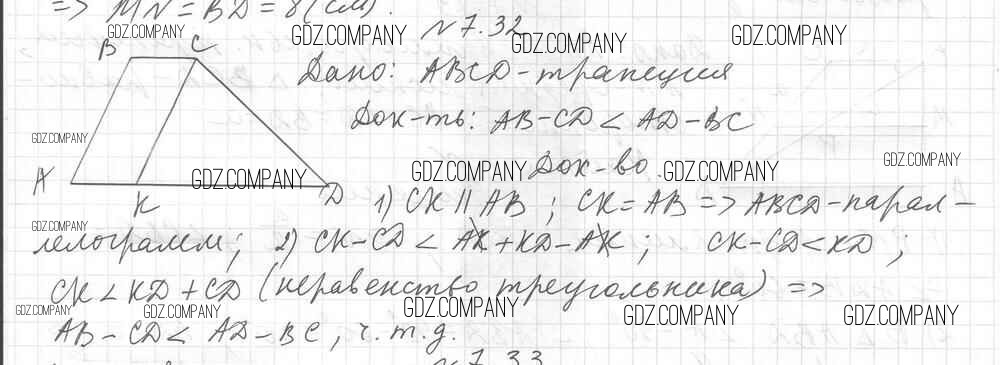 => MN = BD = 8 (см).
GDZ.COMPANY GDZ.COMPANY № 7.32 GDZ.COMPANY GDZ.COMPANY
B C
Дано: ABCD - трапеция
Док-ть: AB - CD < AD - BC
GDZ.COMPANY GDZ.COMPANY
GDZ.COMPANY GDZ.COMPANY Док-во GDZ.COMPANY
A K D
1) CK || AB ; CK = AB => ABCD - парал-
GDZ.COMPANY
лелограмм; 2) CK - CD < AK + KD - AK ; CK - CD < KD ;
CK < KD + CD (неравенство треугольника) =>
GDZ.COMPANY GDZ.COMPANY GDZ.COMPANY GDZ.COMPANY GDZ.COMPANY
AB - CD < AD - BC, ч.т.д.
№ 7.33